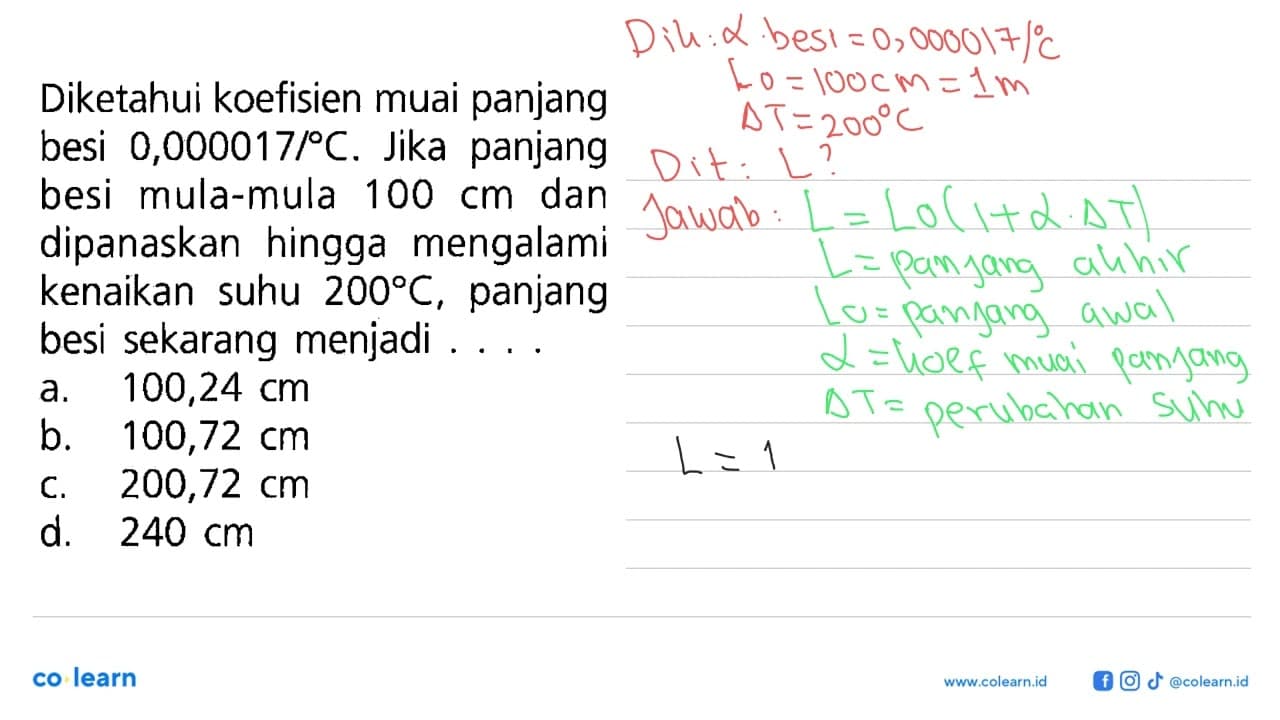 Diketahui koefisien muai panjang
besi 0,000017/°C. Jika panjang
besi mula-mula 100 cm dan
dipanaskan hingga mengalami
kenaikan suhu 200°C, panjang
besi sekarang menjadi . . . .
a. 100,24 cm
b. 100,72 cm
c. 200,72 cm
d. 240 cm
Dik: α besi = 0,000017/°C
L0 = 100 cm = 1 m
ΔT = 200°C
Dit: L?
Jawab: L = L0 (1 + α . ΔT)
L = panjang akhir
L0 = panjang awal
α = koef muai panjang
ΔT = perubahan suhu
L = 1
co learn
www.colearn.id
@colearn.id